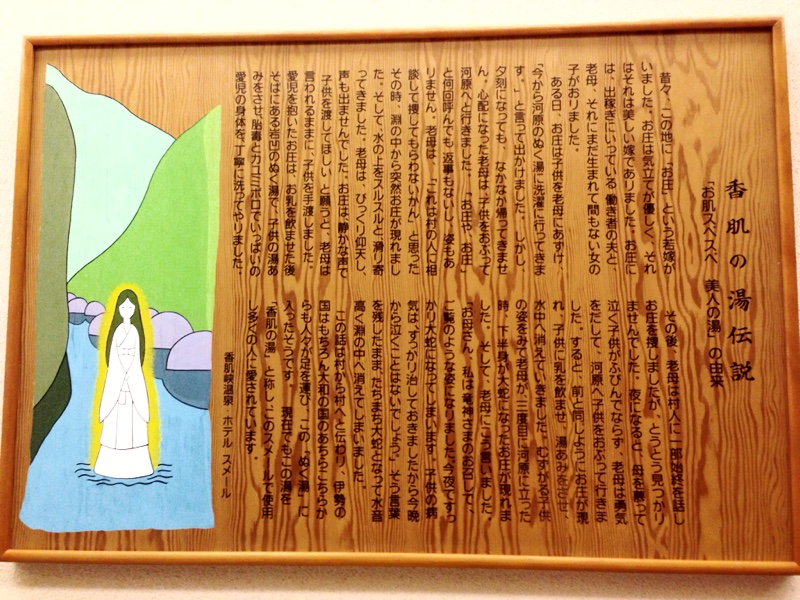 香肌の湯伝説
「お肌スベスベ　美人の湯」の由来
昔々、この地に「お庄」という若嫁が
いました。お庄は気立てが優しく、それ
はそれは美しい嫁でありました。お庄に
は、出稼ぎにいっている働き者の夫と、
老母、それにまだ生まれて間もない女の
子がおりました。
ある日、お庄は子供を老母にあずけ、
「今から河原のぬく湯に洗濯に行ってきま
す。」と言って出かけました。しかし、
夕刻になっても、なかなか帰ってきませ
ん。心配になった老母は、子供をおぶって
河原へと行きました。「お庄や、お庄」
と何回呼んでも返事もないし、姿もあ
りません。老母は、「これは村の人に相
談して捜してもらわないかん」と思った
その時、淵の中から突然お庄が現れまし
た。そして、水の上をスルスルと滑り寄
ってきました。老母は、びっくり仰天し、
声も出ませんでした。お庄は、静かな声で
子供を渡してほしい　と願うと、老母は
言われるままに、子供を手渡しました。
愛児を抱いたお庄は、お乳を飲ませた後
そばにある岩凹のぬく湯で、子供の湯あ
みをさせ、胎毒とカユミボロでいっぱいの
愛児の身体を、丁寧に洗ってやりました。
その後、老母は村人に一部始終を話し
お庄を捜しましたが、とうとう見つかり
ませんでした。夜になると、母を慕って
泣く子供がふびんでならず、老母は勇気
をだして、河原へ子供をおぶって行きま
した。すると、前と同じようにお庄が現
れ、子供に乳を飲ませ、湯あみをさせ、
水中へ消えていきました。むずかる子供
の姿をみて老母が、三度目に河原に立った
時、下半身が大蛇になったお庄が現れま
した。そして、老母にこう言いました。
「お母さん、私は竜神さまのお召しで、
ご覧のような姿になりました。今夜ですっ
かり大蛇になってしまいます。子供の病
気は、すっかり治しておきましたから今晩
から泣くことはないでしょう」そう言葉
を残したまま、たちまち大蛇となって水音
高く淵の中へ消えてしまいました。
この話は村から村へと伝わり、伊勢の
国はもちろん大和の国のあちらこちらか
らも人々が足を運び、この「ぬく湯」に
入ったそうです。　現在でもこの湯を
「香肌の湯」と称し、このスメールで使用
し多くの人々に愛されています。
香肌峡温泉　ホテル　スメール